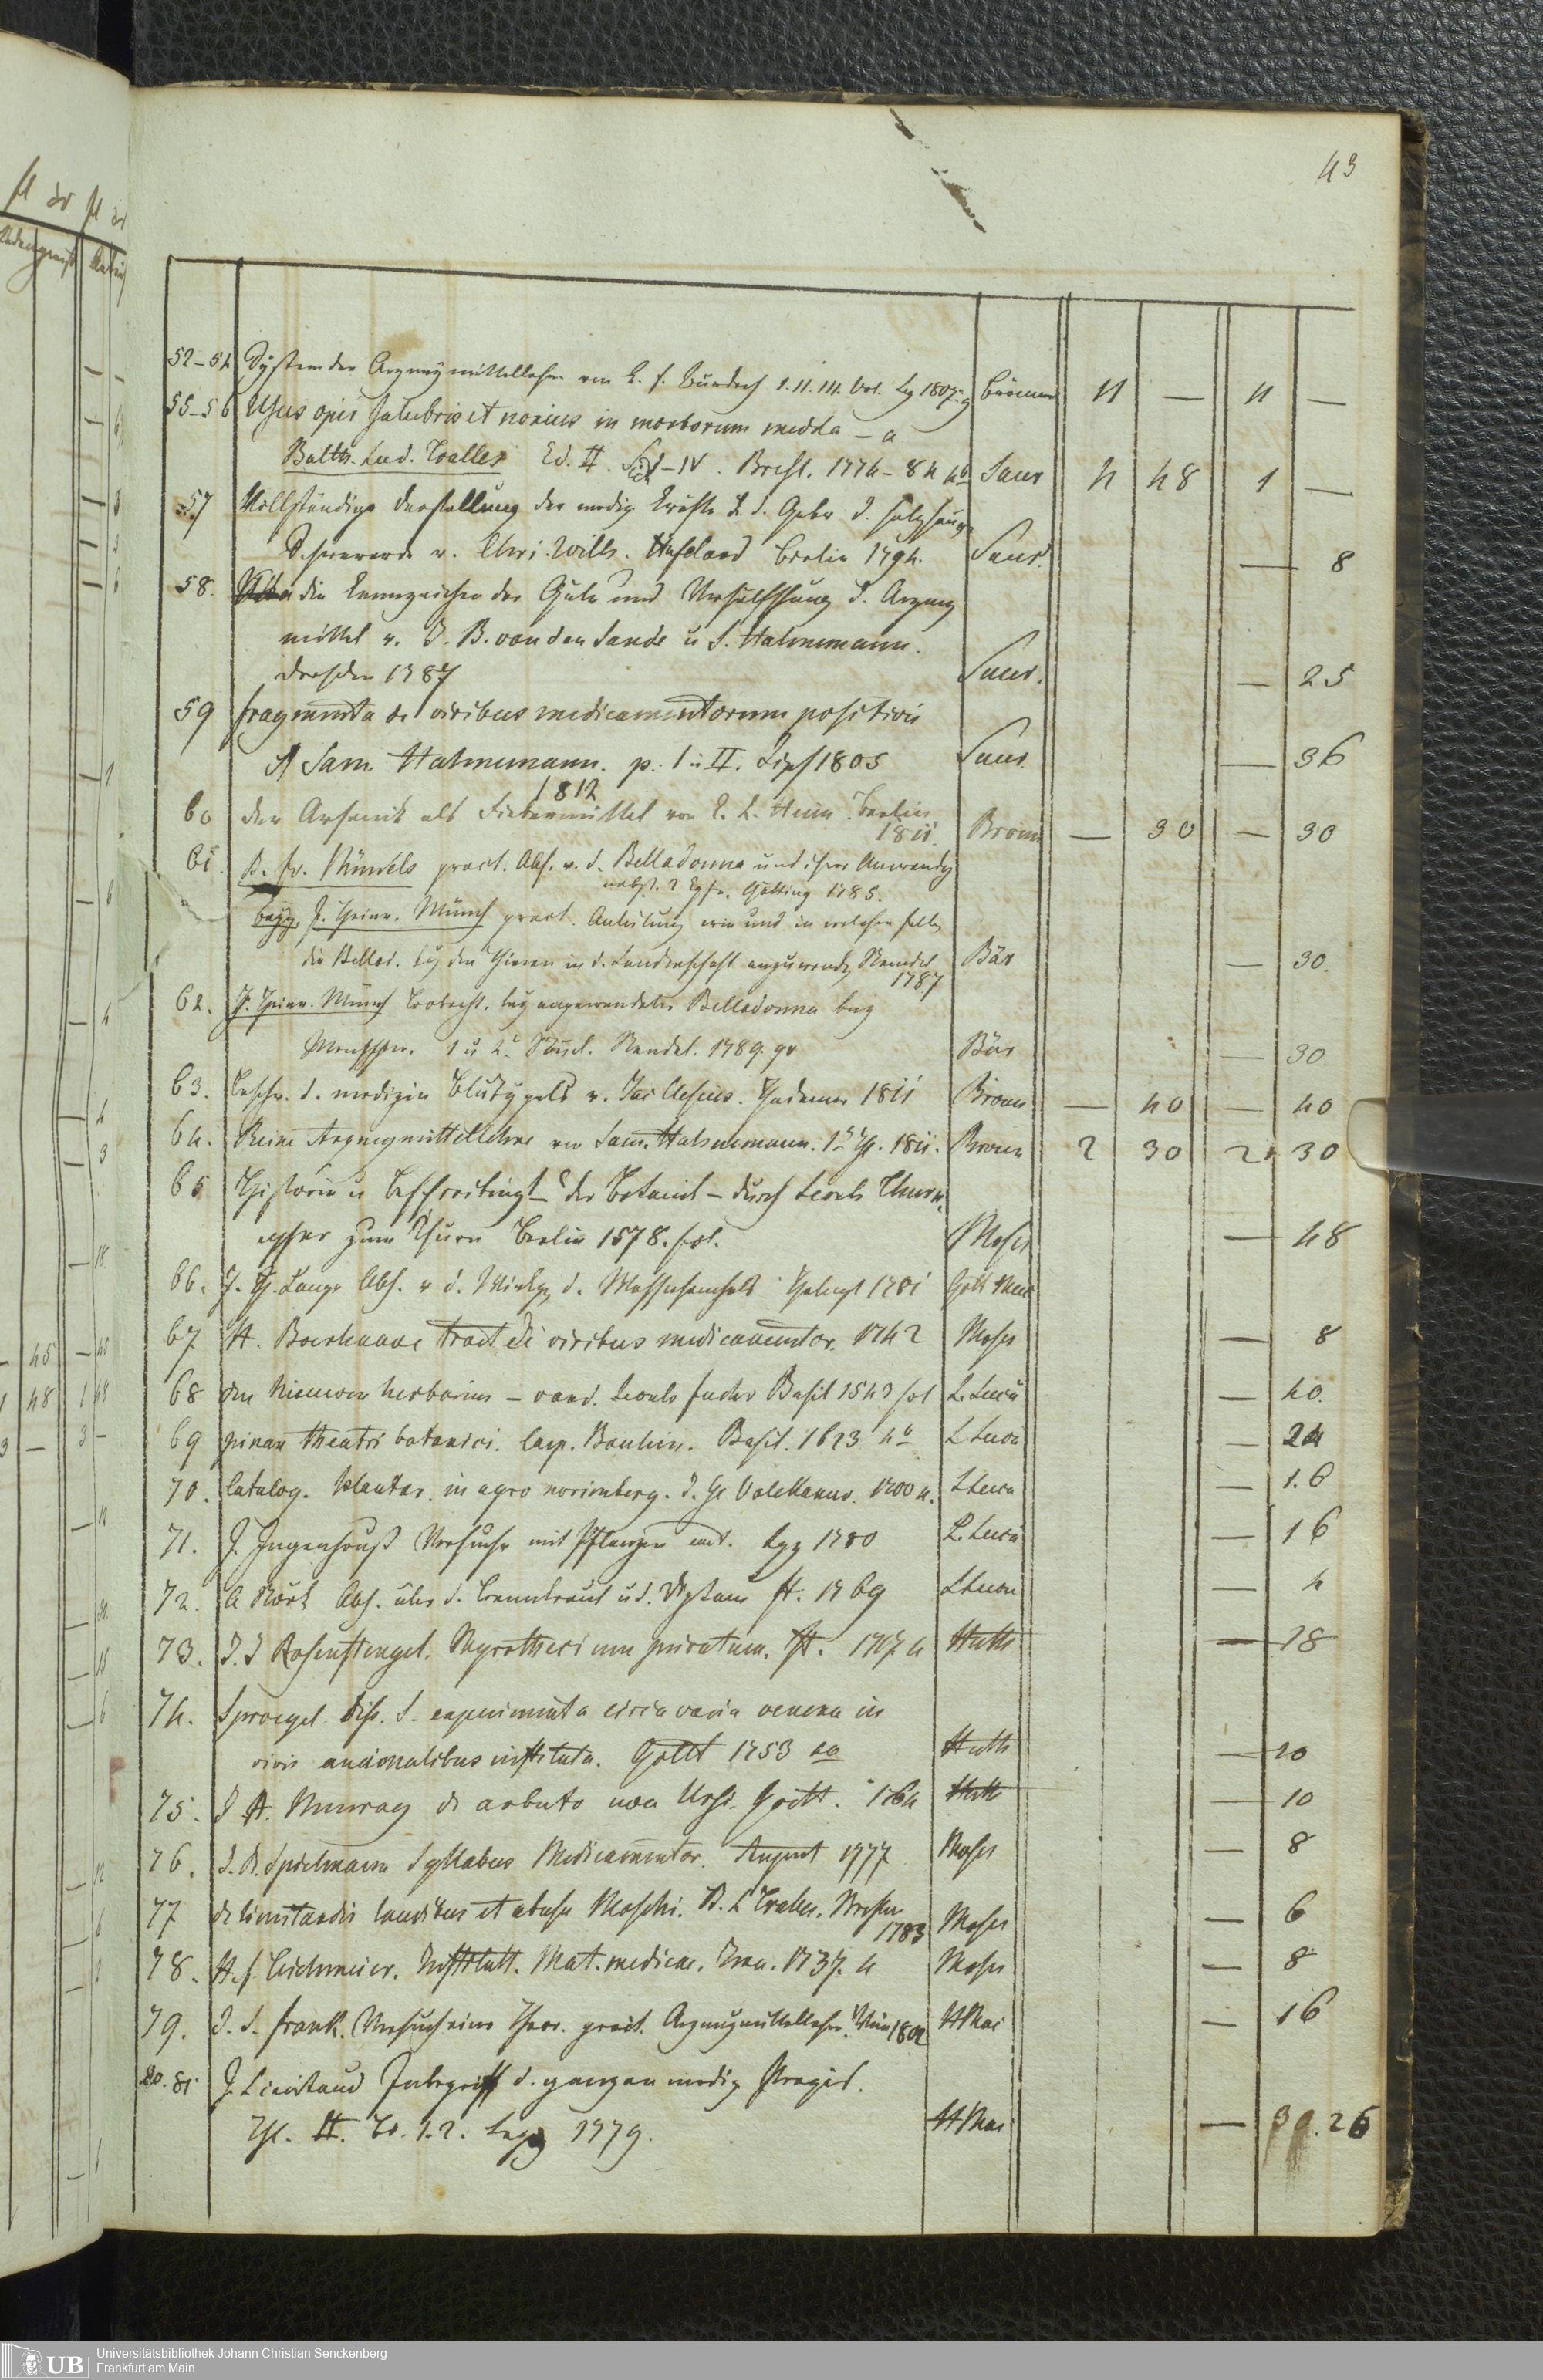 43
52-54 System der Arzneymittellehre von C. F. Burdach I. II. III. Vol. Lpz 1807-9 Brönner 11 — 11 —
55-56 Usus opii salubris et noxius in morborum medela — a
Balth. Lud. Tralles Ed. II. Sect I-IV. Bresl. 1774-84 4o Saur 4 48 1 —
57 Vollständige Darstellung der mediz Kräfte u. d. Gebr d. salzsauren
Schwererde v. Chri. Wilh. Hufeland Berlin 1794. Saur. — 8
58. die Kennzeichen der Güte und Verfälschung d. Arzney
mittel v. J. B. van den Sande u S. Hahnemann.
Dresden 1787 Saur. — 25
59 fragmenta de viribus medicamentorum positivis
Sam. Hahnemann. p. I u II. Lips 1805 Saur. — 36
1812
60 der Arsenik als Fiebermittel von E. L. Heim Berlin
1811. Brönn — 30 — 30
61. B. Fr. Münchs pract. Abh. v. d. Belladonna und ihrer Anwendg
nebst. Götting 1785.
beyg. J. Heinr. Münch pract. Anleitung wie und in welchen Fällen
die Bellad. bey den Thieren in d. Landwirthschaft anzuwenden Stendal
1787 Bär — 30.
62. J. Heinr. Münch Beobacht. bey angewendeter Belladonna bey
Menschen. 1 u 2 Stendal. 1789. 90 Bär — 30
63. Beschr. d. medizin Blutigels v. Jac Clesius. Hadamar 1811 Brönn — 40 — 40
64. Reine Arzneymittellehre von Sam. Hahnemann. 1r Th. 1811. Brönn 2 30 2 30
65 Historia u Beschreibung — der Botanik — durch Leonh Thurn
eysser zum Thurn Berlin 1578. fol. Moses — 48
66. J. H. Lange Abh. v d. Wirkg d. Wasserfenchels Helmst 1781
67 H. Boerhaave tract de viribus medicamentor. 1742 Moses — 8
68 den Nieuwen herbarius — van d. Leonh fuchs Basil 1543 fol L. Luca — 40.
69 pinax theatri botanici. Casp. Bauhin. Basil. 1623 4o L Luca — 24
70. Catalog. plantar. in agro norimberg. J. G. Volckamer. 1700 4. L Luca — 16
71. J. Ingenhouß Versuche mit Pflanzen Lpz 1780 L. Luca — 16
72. A Störk Abh. über d. Brennkraut u d. Diptam ff. 1769 L Luca — 4
73. J. J Rosenstengel. Myrothecium privatum. ff. 1707 4 Huth — 18
74. Sproegel Diss. S. experimenta circa varia venena in
vivis animalibus instituta. Gött 1753 4o Huth — 20
75. J A. Murray de arbuto uva Ursi. Gött. 1764 Huth — 10
76. J. R. Spielmann Syllabus Medicamentor. Argent 1777 Moses — 8
77 de limitandis laudibus et abusu Moschi. B. L Tralles. Breslau
1783 Moses — 6
78. H. f. Teichmeier. Institut. Mat. medicae. Jena. 1737. 4 Moses — 8
79. J. S. Frank. Versuch einer Theor. pract. Arzneymittellehre. Wien 1804 H Mai — 16
80. 81 J. Lieutaud Inbegriff d. ganzen mediz Praxis.
Th. II. Bd. 1. 2. Lpz 1779. H Mai — 26
Universitätsbibliothek Johann Christian Senckenberg
Frankfurt am Main
UB